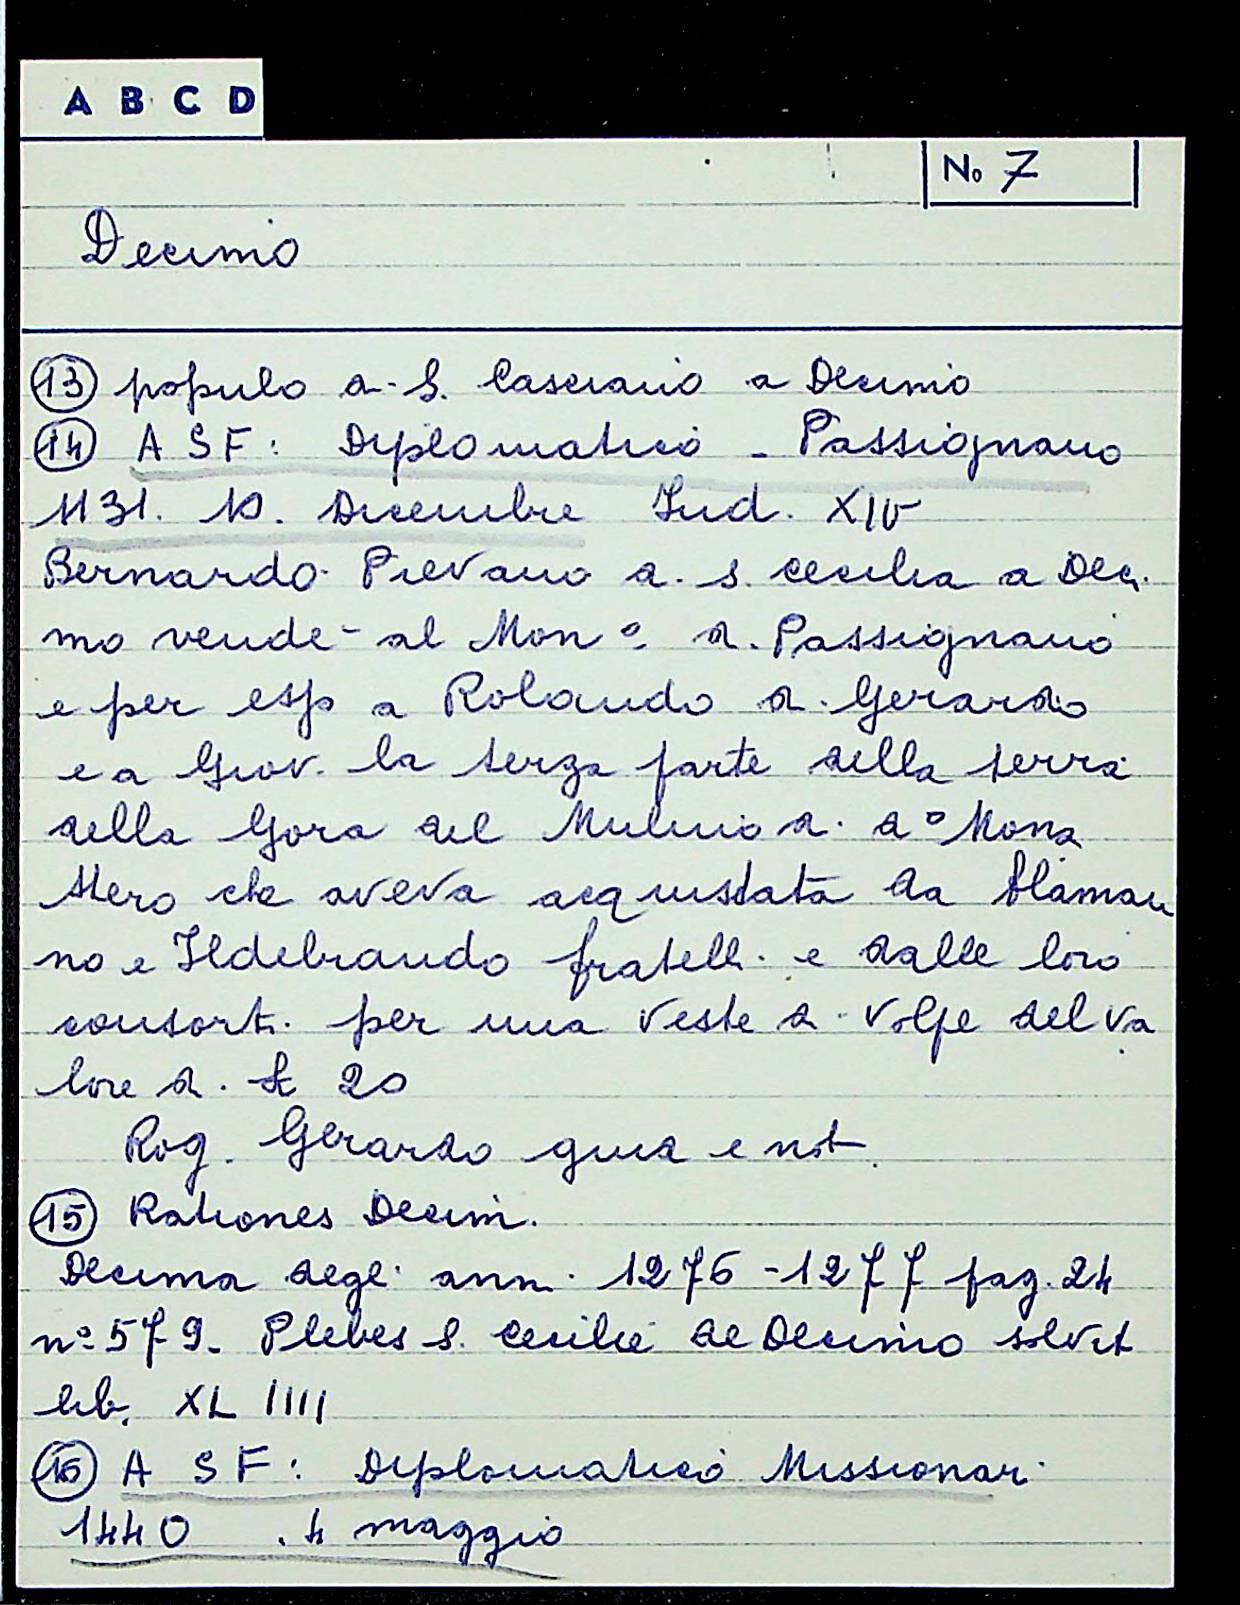 A B C D
No 7
Decimo
13 popolo di S. Casciano a Decimo
14 A S F: Diplomatico - Passignano
1131. 10. Dicembre Ind. XIV
Bernardo Pievano di S. Cecilia a Deci
mo vende al Mon.o di Passignano
e per esso a Rolando di Gerardo
e a Giov. la terza parte della terra
della Gora del Mulino di do Mona
stero che aveva acquistata da Alaman
no e Ildebrando fratelli e dalle loro
consorti per una veste di volpe del va
lore di £ 20
Rog. Gerardo giud e not.
15 Rationes Decim.
Decima degli anni 1276-1277 pag. 24
n° 579. Plebes S. Cecilie de Decimo solvit
lib. XL IIII
16 A S F: Diplomatico Missionari
1440 . 4 maggio